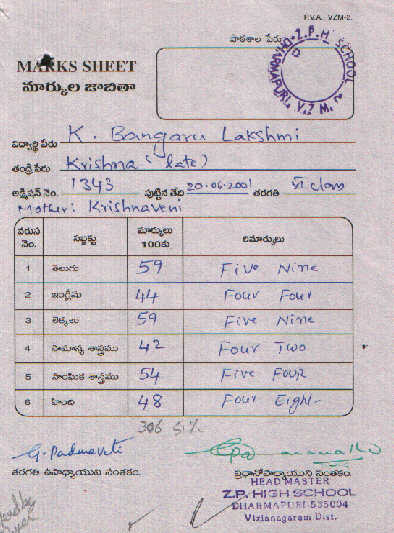 P.V.A., VZM-2.
పాఠశాల పేరు
Z.P.H. SCHOOL
DHARMAPURI, V.Z.M.
MARKS SHEET
మార్కుల జాబితా
విద్యార్థి పేరు K. Bangaru Lakshmi
తండ్రి పేరు Krishna (late)
అడ్మిషన్ నెం. 1343 పుట్టిన తేది 20-06-2001 తరగతి class
Mother: Krishnaveni
వరుస నెం. సబ్జక్టు మార్కులు 100కు రిమార్కులు
1 తెలుగు 59 Five Nine
2 ఇంగ్లీషు 44 Four Four
3 లెక్కలు 59 Five Nine
4 సామాన్య శాస్త్రము 42 Four Two
5 సాంఘిక శాస్త్రము 54 Five Four
6 హింది 48 Four Eight
306 51%
G. Padmavati
తరగతి ఉపాధ్యాయుని సంతకం. ప్రధానోపాధ్యాయుని సంతకం
HEAD MASTER
Z.P. HIGH SCHOOL
DHARMAPURI-535004
Vizianagaram Dist.